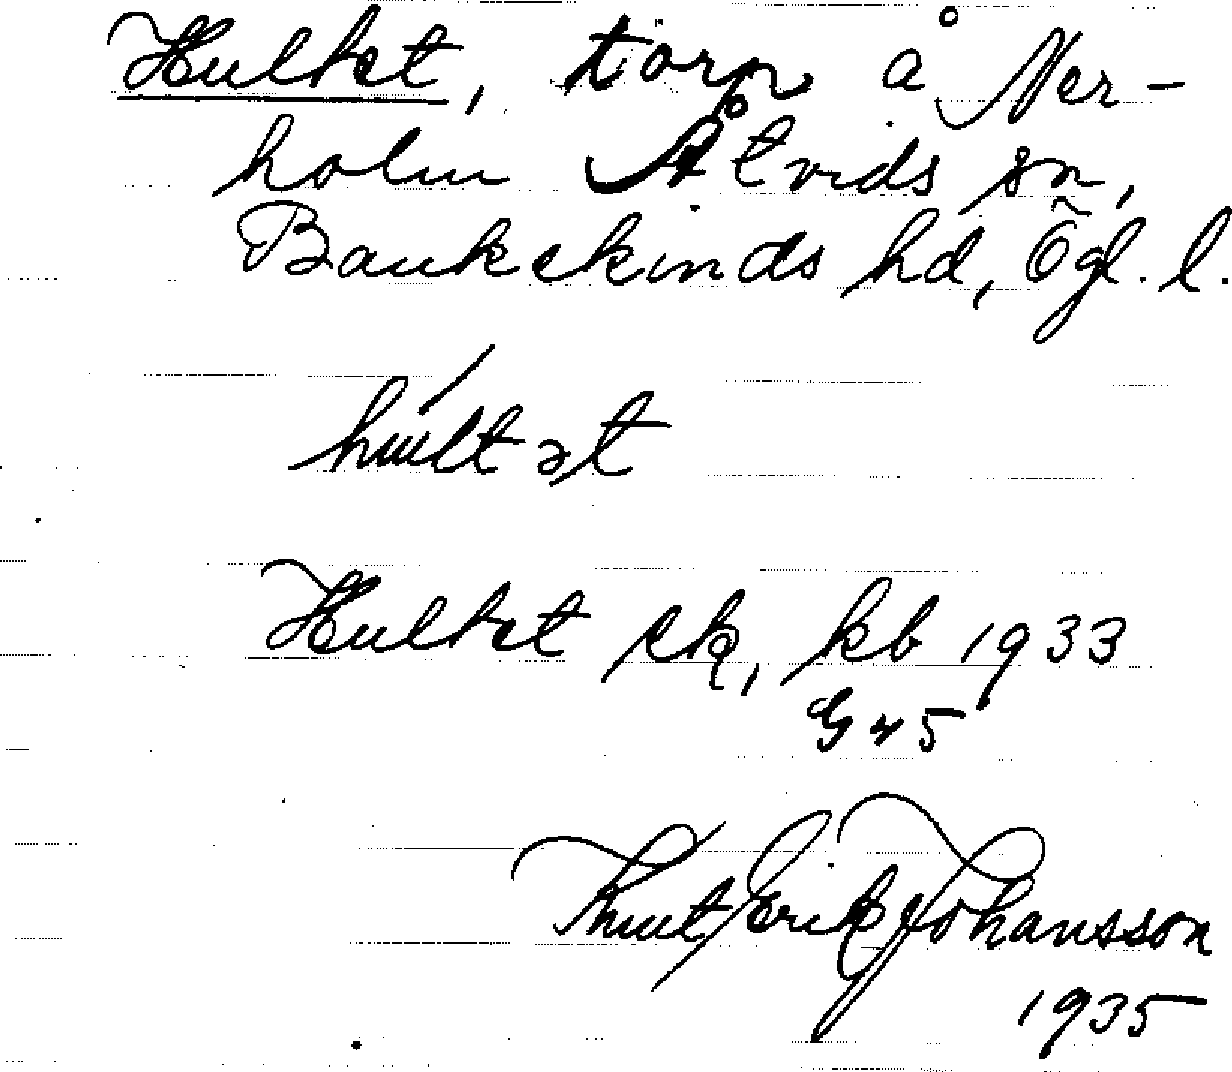 Hultet, torp å Ner-
holm Åtvids sn,
Bankekinds hd, Ögl. l.
hult ət
Hultet ek, kb 1933
G 45
Knut Erik Johansson
1935